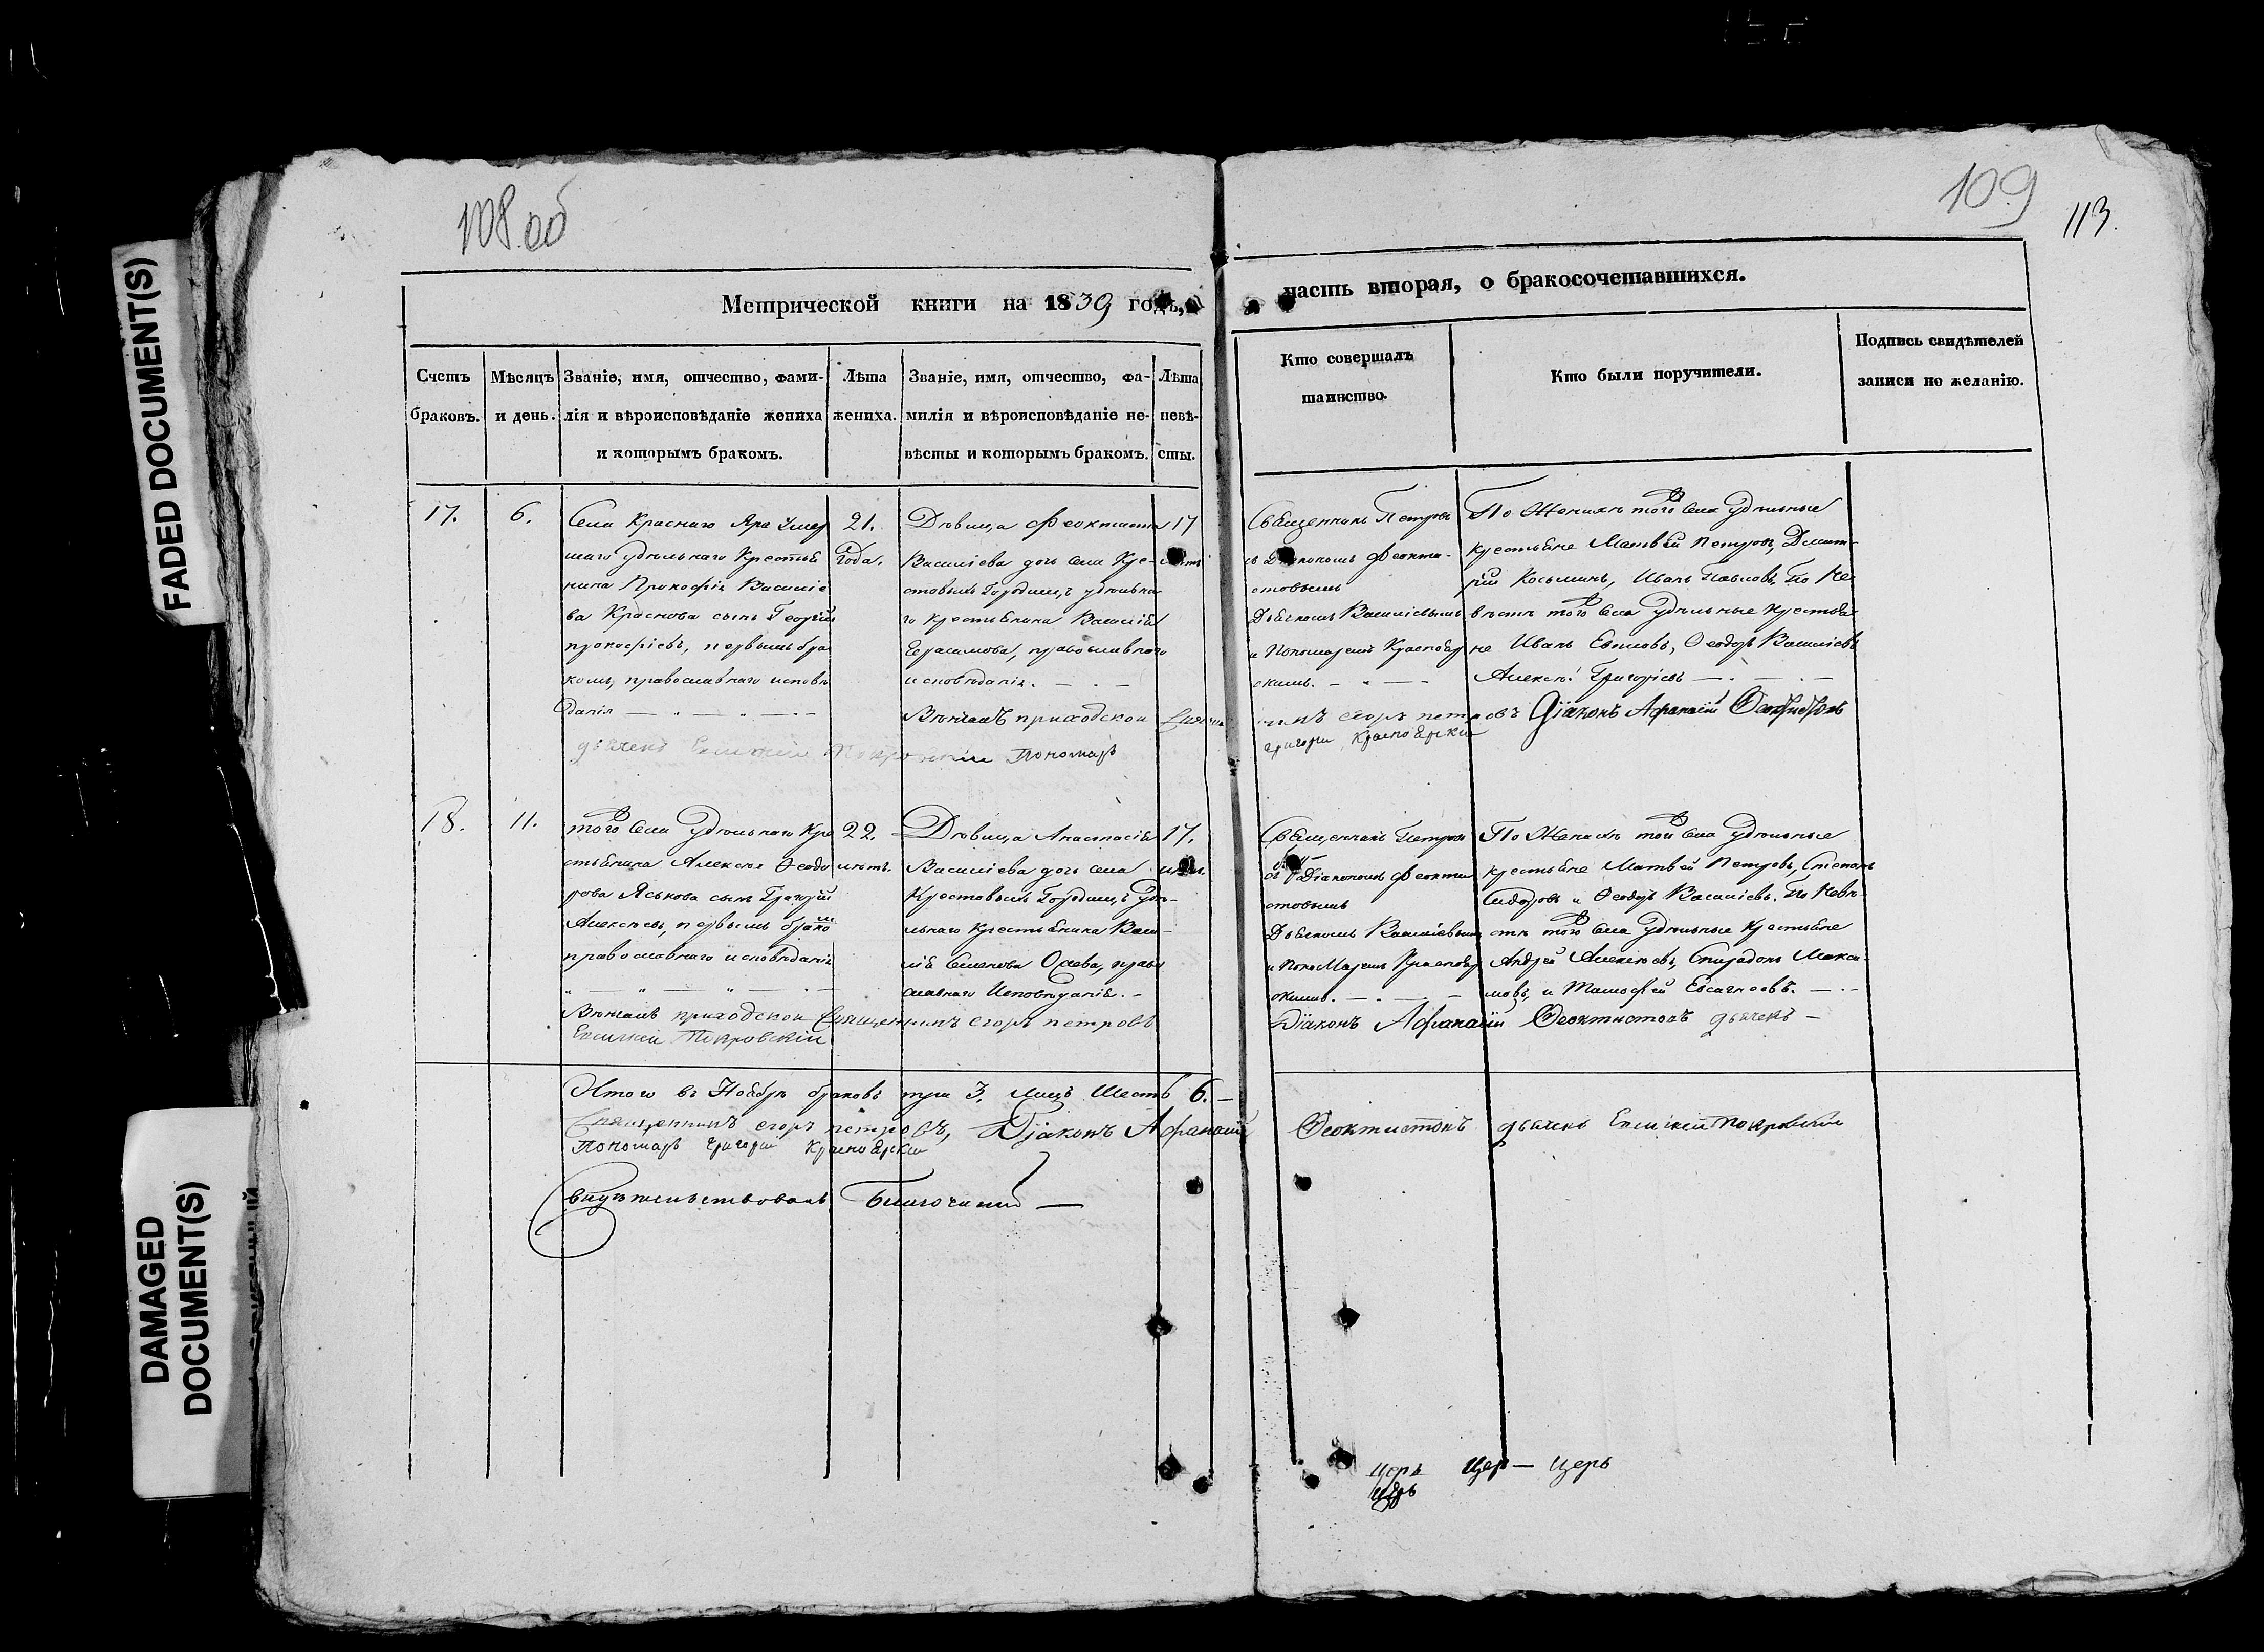 FADED DOCUMENT(S)
DAMAGED
DOCUMENT(S)
108 об
109
113.
Метрической книги на 1839 годъ,
часть вторая, о бракосочетавшихся.
Счетъ
браковъ.
Мѣсяцъ
и день.
Званіе, имя, отчество, фами-
лія и вѣроисповѣданіе жениха
и которымъ бракомъ.
Лѣта
жениха.
Званіе, имя, отчество, фа-
милія и вѣроисповѣданіе не-
вѣсты и которымъ бракомъ.
Лѣта
невѣ-
сты.
Кто совершалъ
таинство.
Кто были поручители.
Подпись свидѣтелей
записи по желанію.
17.
6.
Села Краснаго Яра Умер
шаго удѣльнаго Крестья
нина Прокофія Василіе
ва Краснова сынъ Георгій
прокофіевъ, первымъ бра
комъ, православнаго исповѣ
данія
21.
года.
Дѣвица Феоктиста
Василіева дочь села Кре-
стовыхъ Городищъ удѣльна
го крестьянина Василія
Герасимова, православнаго
исповѣданія.
17
Священникъ Петровъ
съ Діакономъ Феокти-
стовымъ
Дьячкомъ Василіевымъ
и Пономаремъ Краснояр
скимъ.
По Женихѣ того села Удѣльные
крестьяне Матвѣй Петровъ, Димит-
рій Косьминъ, Иванъ Павловъ, По Не
вѣстѣ того села Удѣльные крестья
не Иванъ Ефимовъ, Ѳеодоръ Василіевъ
Алексѣй Григорьевъ
Вѣнчалъ приходской Священникъ егоръ петровъ Діаконъ Афанасій Феоктистовъ
дьячекъ Покровскій Пономарь Григорій Красноярскій
18.
11.
того села Удѣльнаго Кре
стьянина Алексѣя Ѳеодо
рова Яськова сынъ Григорій
Алексѣевъ, первымъ бракомъ
православнаго исповѣданія
22.
лѣтъ.
Дѣвица Анастасія
Василіева дочь села
Крестовыхъ Городищъ Удѣ-
льнаго Крестьянина Васи-
лія Семенова, право
славнаго Исповѣданія.
17.
Священникъ Петровъ
съ Діакономъ Феокти
стовымъ
Дьячкомъ Василіевымъ
и Пономаремъ Краснояр
скимъ.
По Женихѣ того села Удѣльные
крестьяне Матвѣй Петровъ, Степанъ
Сидоровъ и Ѳеодоръ Василіевъ. По Невѣ-
стѣ того села Удѣльные Крестьяне
Андрей Алексѣевъ, Спиридонъ Макси-
мовъ, и Тимофей
Вѣнчалъ приходской Священникъ егоръ петровъ Діаконъ Афанасій Феоктистовъ дьячекъ
Покровскій
Итого въ Ноябрѣ браковъ три 3. лицъ Шесть 6.
Священникъ егоръ петровъ, Діаконъ Афанасій Феоктистовъ дьячекъ Покровскій
Пономарь Григорій Красноярскій
Свидѣтельствовалъ Благочинный
Церь Цер — Церь
Церь